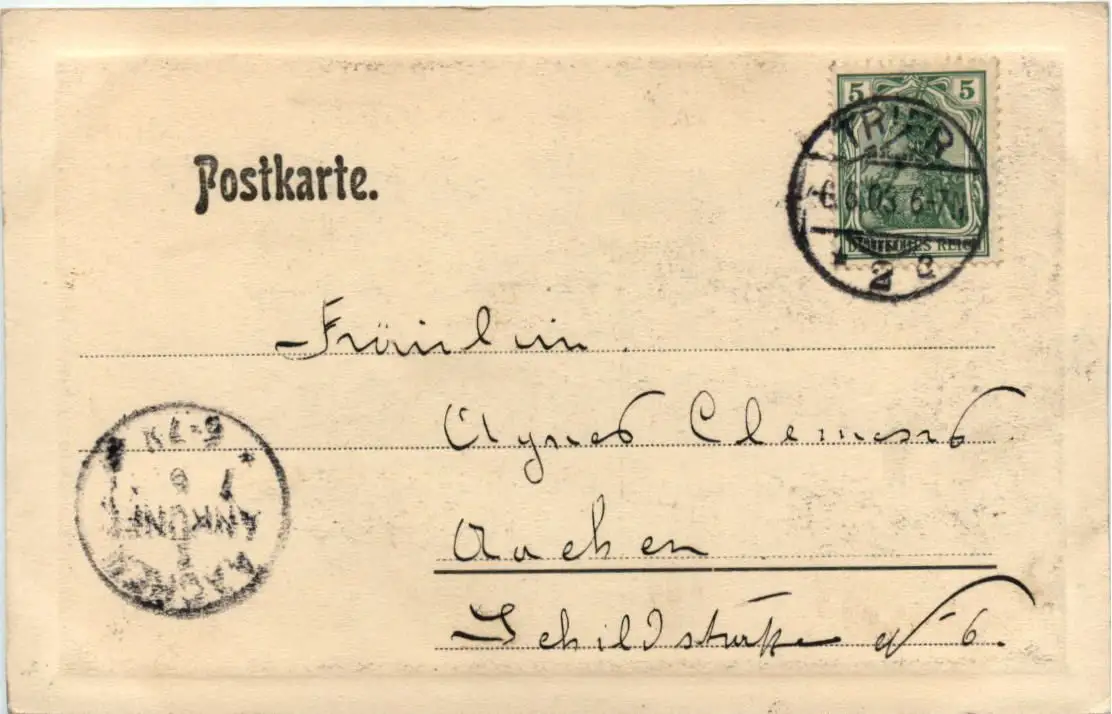 5 5
TRIER
6.6.03. 6-7N
DEUTSCHES REICH
* 2 a
Postkarte.
Fräulein
Agnes Clemens
Aachen
Schildstraße No 6.
AACHEN
1
ANKUNFT
7 6
* 6-7N *